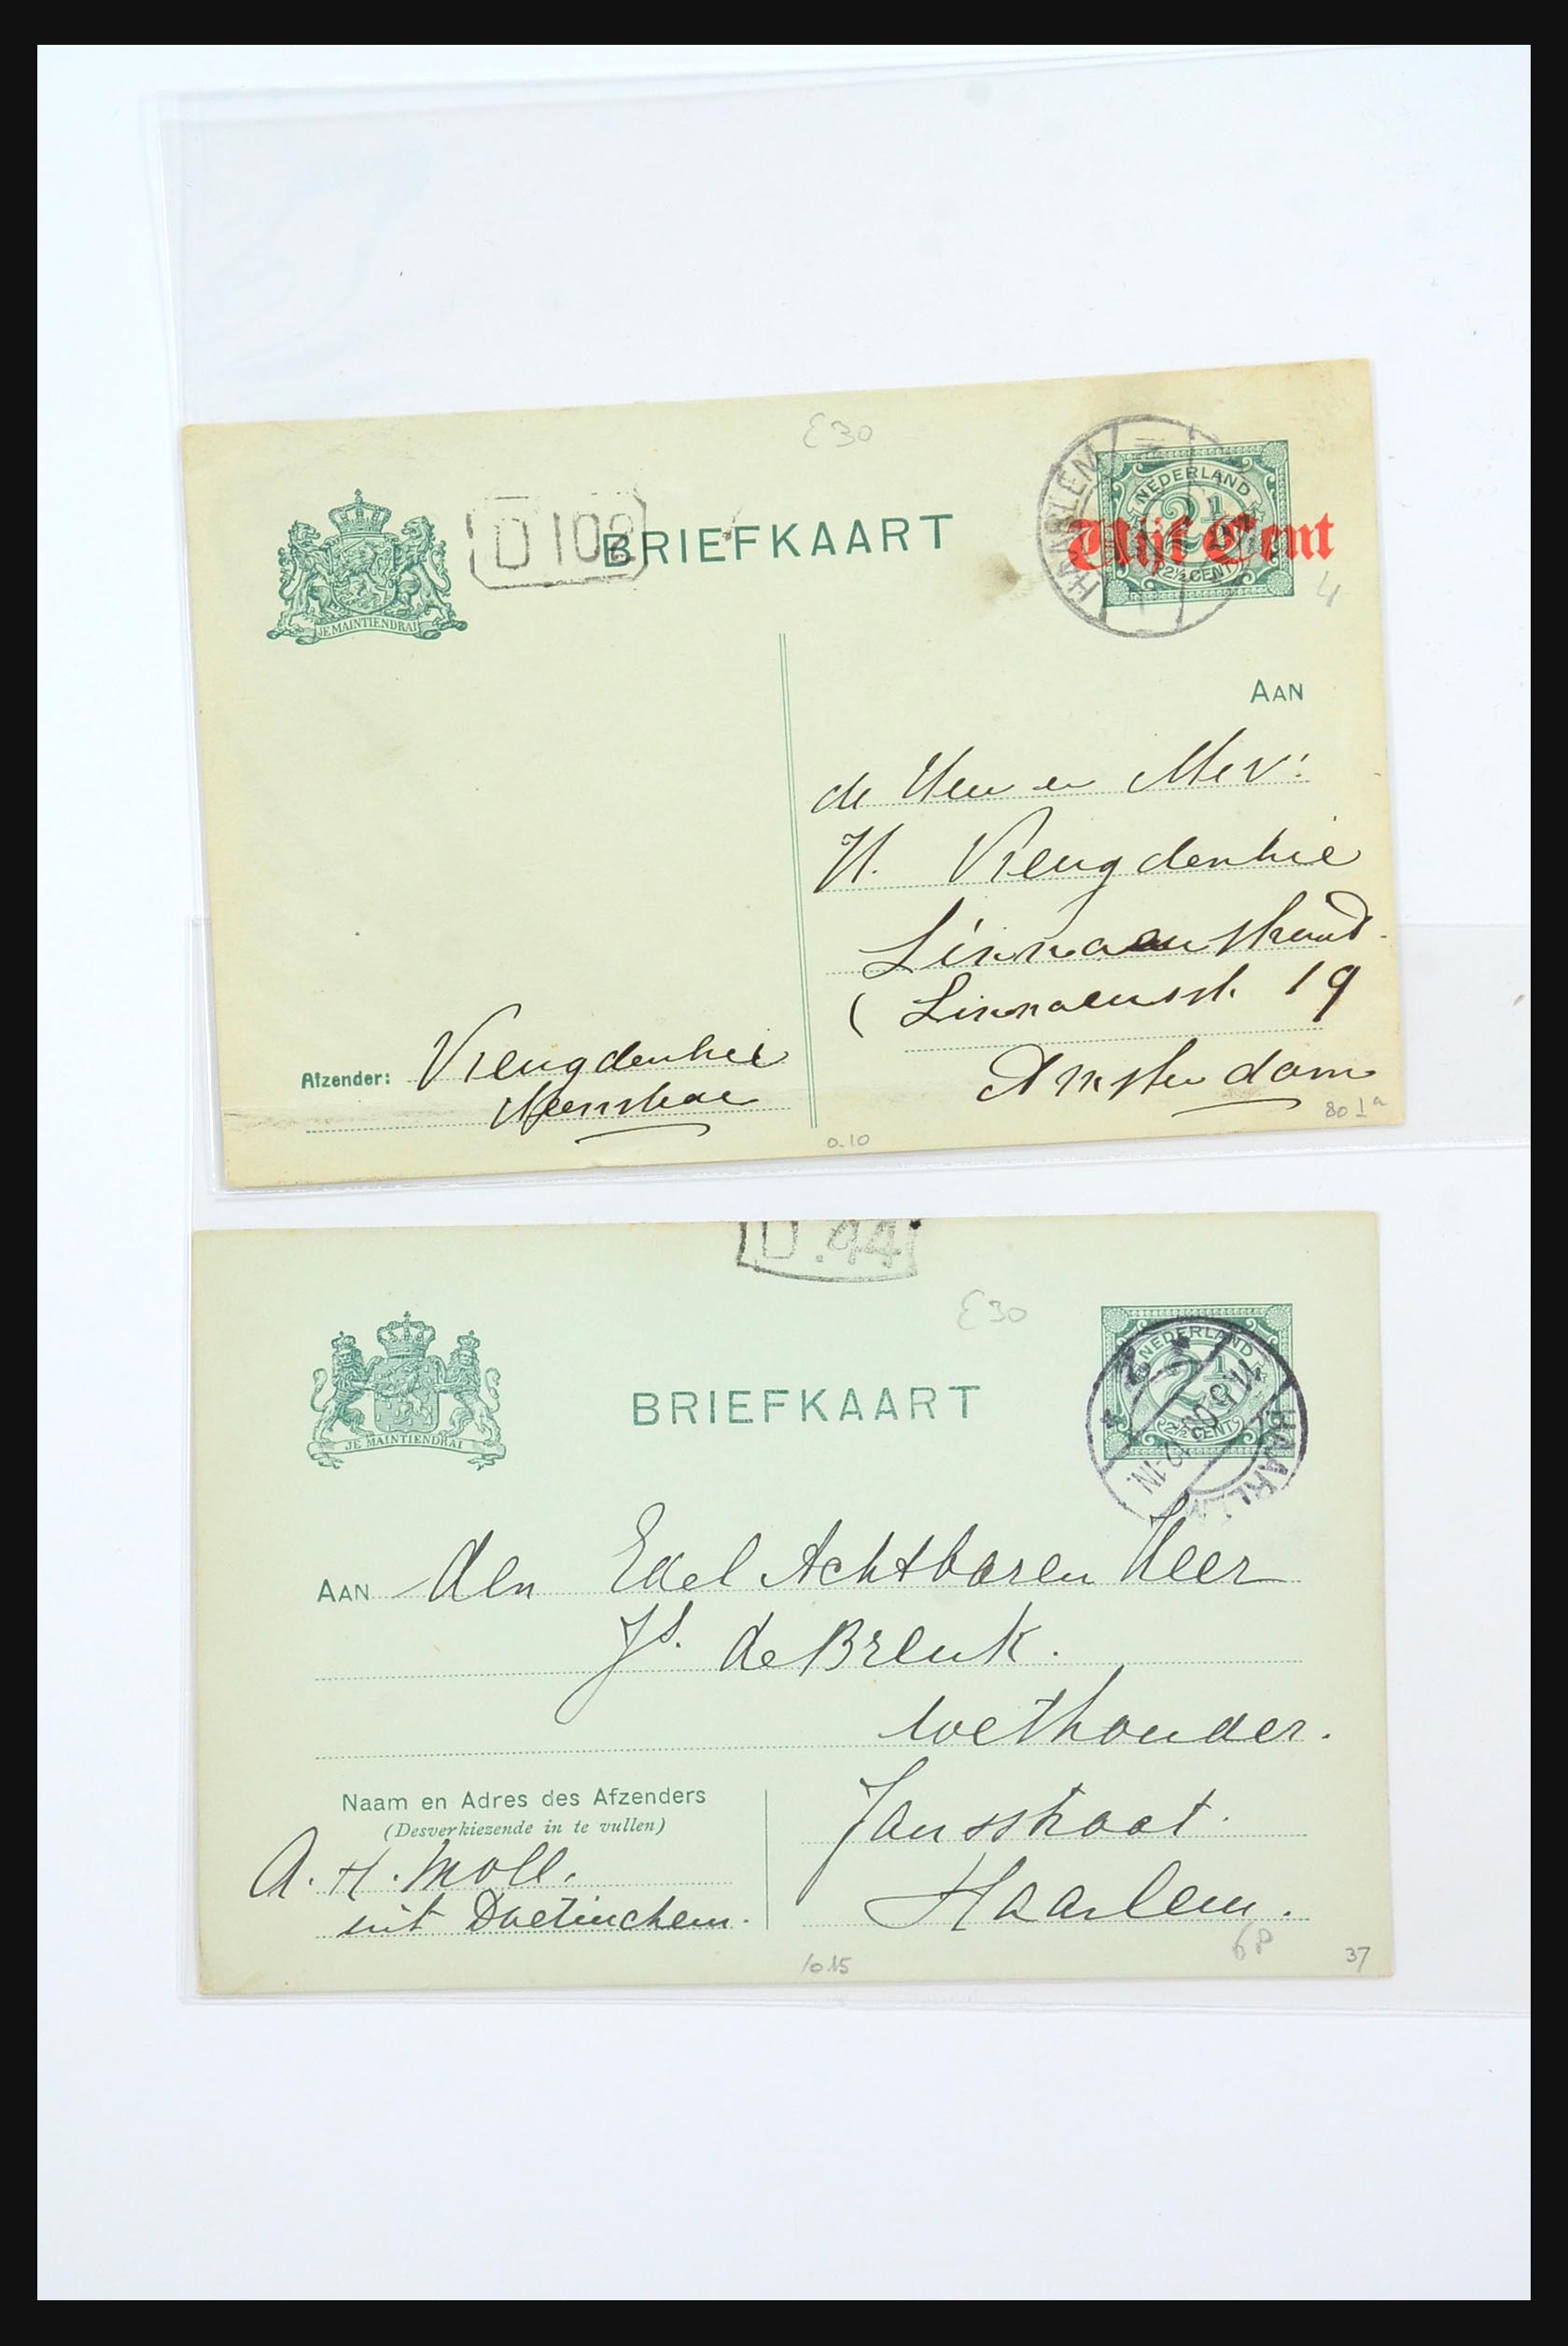 E30
D 102
BRIEFKAART
HAARLEM
NEDERLAND
2½
2½ CENT
Vijf Cent
4
JE MAINTIENDRAI
AAN
de Heer en Mev:
H. Vreugdenhil
Linnaeusstraat.
( Linnaeusstr. 19
Amsterdam
Afzender: Vreugdenhil
Heemstede
0.10
80 Ia
D.44
E30
BRIEFKAART
NEDERLAND
2½
2½ CENT
HAARLEM
JE MAINTIENDRAI
AAN den Edel Achtbaren Heer
Js. de Breuk.
wethouder.
Naam en Adres des Afzenders
(Desverkiezende in te vullen)
Jansstraat.
A. H. Moll.
uit Doetinchem.
Haarlem.
68
37